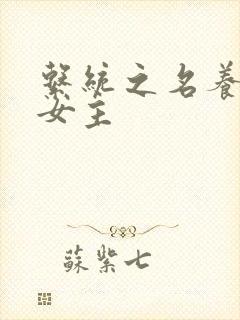 繫統之名養
女主
蘇紫七